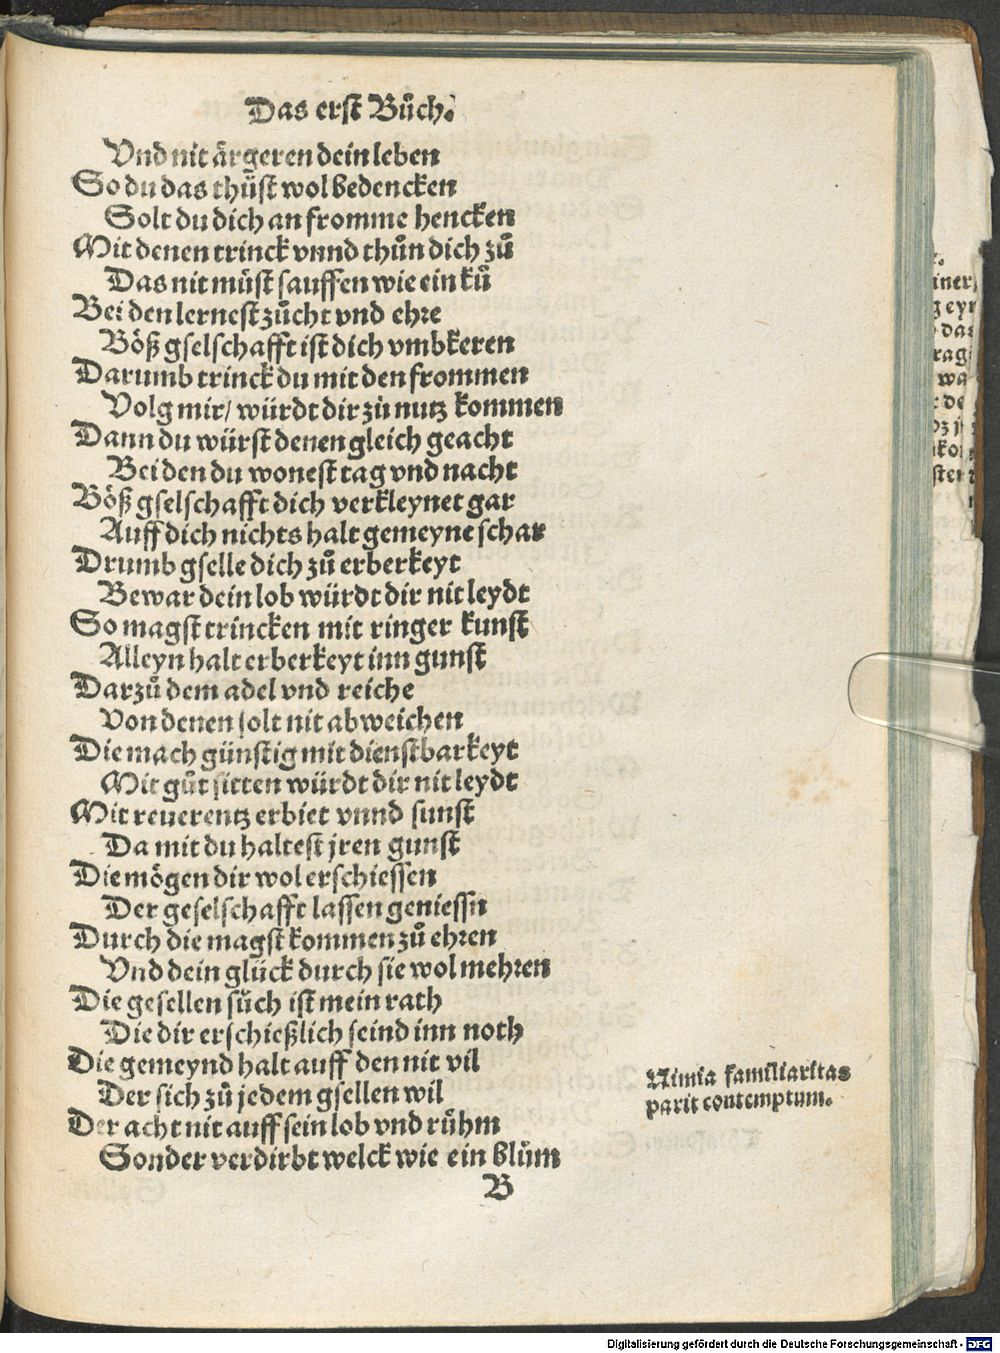 Das erst Bůch.
Vnd nit ärgeren dein leben
So du das thůst wol bedencken
Solt du dich an fromme hencken
Mit denen trinck vnnd thůn dich zů
Das nit můst sauffen wie ein ků
Bei den lernest zůcht vnd ehre
Böß gselschafft ist dich vmbkeren
Darumb trinck du mit den frommen
Volg mir/ würdt dir zů nutz kommen
Dann du würst denen gleich geacht
Bei den du wonest tag vnd nacht
Böß gselschafft dich verkleynet gar
Auff dich nichts halt gemeyne schar
Drumb gselle dich zů erberkeyt
Bewar dein lob würdt dir nit leydt
So magst trincken mit ringer kunst
Alleyn halt erberkeyt inn gunst
Darzů dem adel vnd reiche
Von denen solt nit abweichen
Die mach günstig mit dienstbarkeyt
Mit gůt sitten würdt dir nit leydt
Mit reuerentz erbiet vnnd sunst
Da mit du haltest jren gunst
Die mögen dir wol erschiessen
Der geselschafft lassen geniessn
Durch die magst kommen zů ehren
Vnd dein glück durch sie wol mehren
Die gesellen sůch ist mein rath
Die dir erschießlich seind inn noth
Die gemeynd halt auff den nit vil
Der sich zů jedem gsellen wil
Der acht nit auff sein lob vnd růhm
Sonder verdirbt welck wie ein blům
Nimia familiaritas
parit contemptum.
B
iner
g eyn
das
rag
wa
de
Digitalisierung gefördert durch die Deutsche Forschungsgemeinschaft - DFG